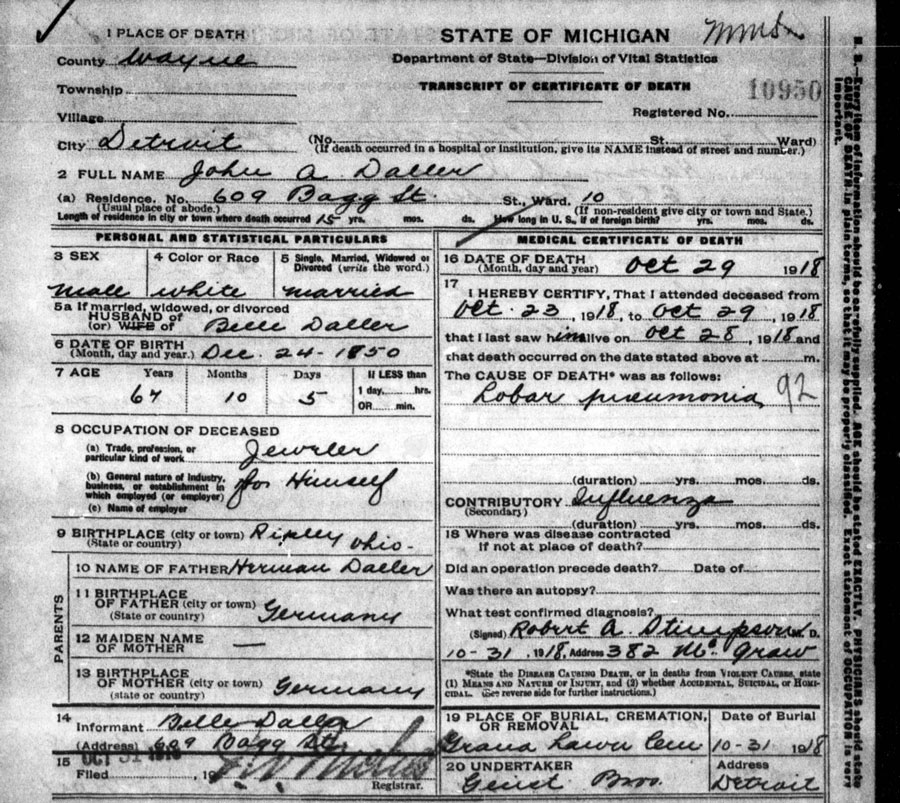 1 PLACE OF DEATH
County Wayne
Township
Village
City Detroit
STATE OF MICHIGAN
Department of State—Division of Vital Statistics
TRANSCRIPT OF CERTIFICATE OF DEATH
10950
Registered No.
(No. St. Ward)
(If death occurred in a hospital or institution, give its NAME instead of street and number.)
2 FULL NAME John A Daller
(a) Residence. No. 609 Bagg St. St., Ward. 10
(Usual place of abode.) (If non-resident give city or town and State.)
Length of residence in city or town where death occurred 15 yrs. mos. ds. How long in U. S., if of foreign birth? yrs. mos. ds.
PERSONAL AND STATISTICAL PARTICULARS
3 SEX 4 Color or Race 5 Single, Married, Widowed or
Divorced (write the word.)
Male White Married
5a If married, widowed, or divorced
HUSBAND of
(or) WIFE of Belle Daller
6 DATE OF BIRTH
(Month, day and year.) Dec. 24 - 1850
7 AGE Years Months Days If LESS than
1 day, hrs.
OR min.
67 10 5
8 OCCUPATION OF DECEASED
(a) Trade, profession, or
particular kind of work Jeweler
(b) General nature of industry,
business, or establishment in
which employed (or employer) for Himself
(c) Name of employer
9 BIRTHPLACE (city or town) Ripley
(State or country) Ohio
PARENTS
10 NAME OF FATHER Herman Daller
11 BIRTHPLACE
OF FATHER (city or town)
(State or country) Germany
12 MAIDEN NAME
OF MOTHER —
13 BIRTHPLACE
OF MOTHER (city or town)
(state or country) Germany
14
Informant Belle Daller
(Address) 609 Bagg St.
15 OCT 31 1918
Filed , 19
Registrar.
MEDICAL CERTIFICATE OF DEATH
16 DATE OF DEATH
(Month, day and year) Oct 29 1918
17
I HEREBY CERTIFY, That I attended deceased from
Oct. 23, 1918, to Oct 29, 1918
that I last saw him alive on Oct 28, 1918 and
that death occurred on the date stated above at m.
The CAUSE OF DEATH* was as follows:
Lobar pneumonia 92
(duration) yrs. mos. ds.
CONTRIBUTORY Influenza
(Secondary)
(duration) yrs. mos. ds.
18 Where was disease contracted
If not at place of death?
Did an operation precede death? Date of
Was there an autopsy?
What test confirmed diagnosis?
(Signed) Robert A. Stimpson M. D.
10-31 1918, Address 382 Mc Graw
*State the DISEASE CAUSING DEATH, or in deaths from VIOLENT CAUSES, state
(1) MEANS AND NATURE OF INJURY, and (2) whether ACCIDENTAL, SUICIDAL, or HOMI-
CIDAL. (See reverse side for further instructions.)
19 PLACE OF BURIAL, CREMATION, Date of Burial
OR REMOVAL
Grand Lawn Cem 10-31 1918
20 UNDERTAKER Address
Geist Bros. Detroit
N. B.—Every item of information should be carefully supplied. AGE should be stated EXACTLY. PHYSICIANS should state
CAUSE OF DEATH in plain terms, so that it may be properly classified. Exact statement of OCCUPATION is very
important.